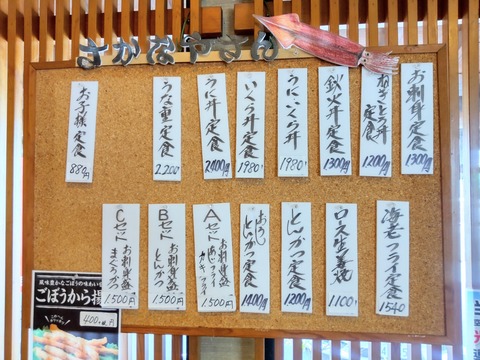 さかなやさん
お刺身定食
1300円
ねぎとろ丼
定食
1200円
鉄火丼定食
1300円
うにいくら丼
1980円
いくら丼定食
1980円
うに丼定食
2400円
うな重定食
2200
お子様定食
880円
海老フライ定食
1540
ロース生姜焼
1100
とんかつ定食
1200円
おろし
とんかつ定食
1400円
Aセット
お刺身盛
あじフライ
1500円
Bセット
お刺身盛
とんかつ
1500円
Cセット
お刺身盛
まぐろかつ
1500円
風味豊かなごぼうの味わい
ごぼうから揚
400